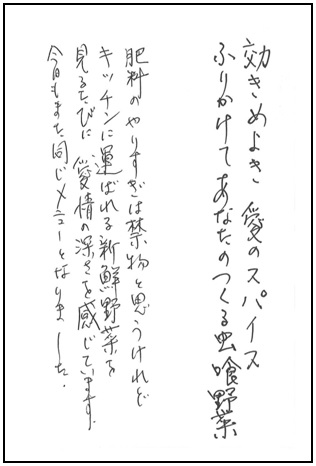 効きめよき 愛のスパイス
ふりかけてあなたのつくる虫喰野菜
肥料のやりすぎは禁物と思うけれど
キッチンに運ばれる新鮮野菜を
見るたびに愛情の深さを感じています。
今日もまた同じメニューとなりました。